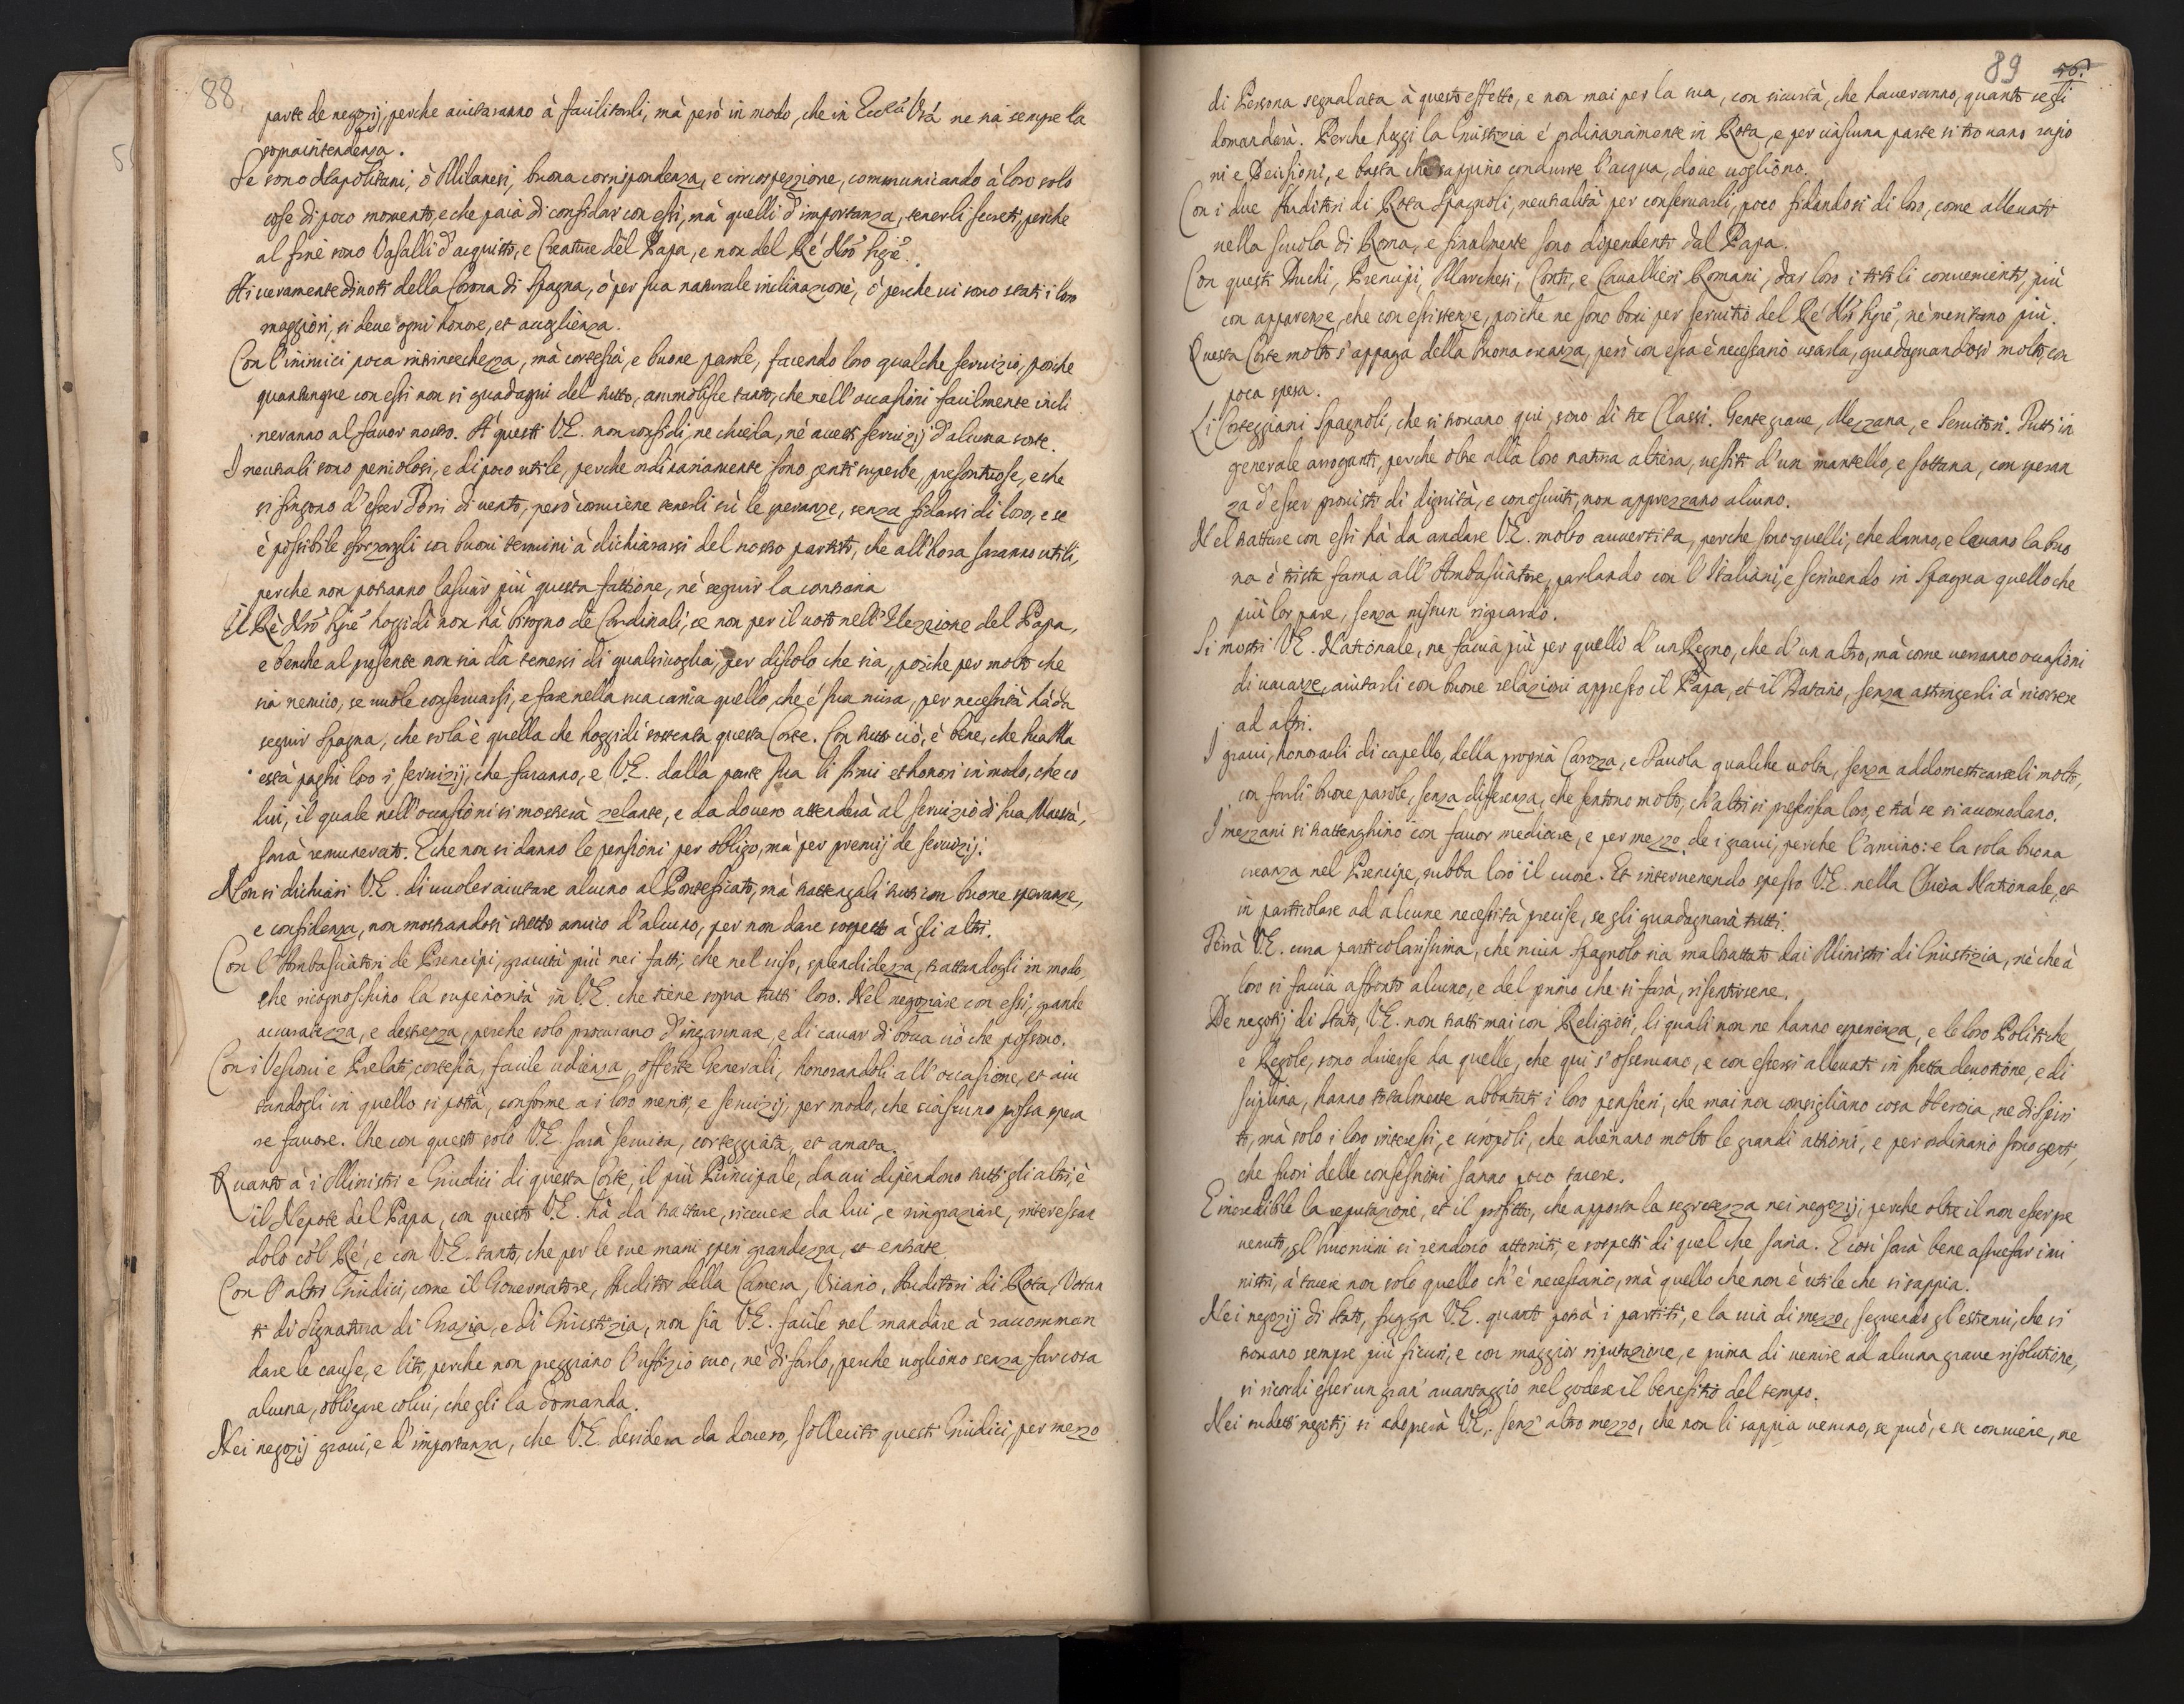 88.
parte de negozij, perche aiutaranno à facilitarli, mà però in modo, che in Ecc.za V.ra ne sia sempre la
sopraintendenza.
Se sono Napolitani, ò Milanesi, buona corrispondenza, e circospezzione, communicando à loro solo
cose di poco momento, e che paia di confidar con essi, mà quelli d'importanza, tenerli secreti, perche
al fine sono Vasalli d'acquisto, e Creature del Papa, e non del Rè Nrõ Sigrẽ.
Ai veramente divoti della Corona di Spagna, ò per sua naturale inclinazione, ò perche vi sono stati i loro
maggiori, si deve ogni honore, et accoglienza.
Con l'inimici poca intrinsechezza, mà cortesia, e buone parole, facendo loro qualche servizio, poiche
quantunque con essi non si guadagni del tutto, ammolisce tanto, che nell'occasioni facilmente incli
neranno al favor nostro. A' questi V.E. non confidi, ne chieda, nè accetti servizij d'alcuna sorte.
I neutrali sono pericolosi, e di poco utile, perche ordinariamente sono genti superbe, presontuose, e che
si fingono d'esser Torri di vento, però conviene tenerli sù le speranze, senza fidarsi di loro, e se
è possibile sforzargli con buoni termini à dichiararsi del nostro partito, che all'hora saranno utili,
perche non potranno lasciar più questa fattione, nè seguir la contraria
Il Rè Nrõ Sigrẽ hoggidi non hà bisogno de Cardinali, se non per il voto nell'Elezzione del Papa,
e benche al presente non sia da temersi di qualsivoglia, per discolo che sia, poiche per molto che
sia nemico, se vuole conservarsi, e fare nella sua carica quello, che è sua mira, per necessità hà da
seguir Spagna, che sola è quella che hoggidi sostenta questa Corte. Con tutto ciò, è bene, che Sua Ma
està paghi loro i servizij, che faranno, e V.E. dalla parte sua li stimi et honori in modo, che co
lui, il quale nell'occasioni si mostrerà zelante, e da dovero attenderà al servizio di Sua Maestà,
sarà remunerato. E che non si danno le pensioni per obligo, mà per premij de servizij.
Non si dichiari V.E. di voler aiutare alcuno al Pontificato, mà trattengali tutti con buone speranze,
e confidenza, non mostrandosi stretto amico d'alcuno, per non dare sospetto à gli altri.
Con l'Ambasciatori de Prencipi, gravità più nei fatti, che nel viso, splendidezza, trattandogli in modo,
che ricognoschino la superiorità in V.E. che tiene sopra tutti loro. Nel negoziare con essi, grande
accuratezza, e destrezza, perche solo procurano d'ingannare, e di cavar di bocca ciò che possono.
Con i Vescovi e Prelati, cortesia, facile udienza, offerte Generali, honorandoli all'occasione, et aiu
tandogli in quello si potrà, conforme a i loro meriti, e servizij, per modo, che ciascuno possa spera
re favore. Che con questo solo V.E. sarà servita, corteggiata, et amata.
Quanto à i Ministri e Giudici di questa Corte, il più Principale, da cui dipendono tutti gli altri, è
il Nepote del Papa, con questo V.E. hà da trattare, ricevere da lui, e ringraziare, interessan
dolo col Rè, e con V.E. tanto, che per le sue mani speri grandezza, et entrate.
Con l'altri Giudici, come il Governatore, Auditor della Camera, Vicario, Auditori di Rota, Votan
ti di Signatura di Grazia, e di Giustizia, non sia V.E. facile nel mandare à raccomman
dare le cause, e liti, perche non preggiano l'uffizio suo, nè di farlo, perche vogliono senza far cosa
alcuna, obligare colui, che gli la domanda.
Nei negozij gravi, e d'importanza, che V.E. desidera da dovero, solleciti questi Giudici, per mezzo
89 46.
di Persona segnalata à questo effetto, e non mai per la sua, con sicurtà, che haveranno, quanto se gli
domanderà. Perche hoggi la Giustizia è ordinariamente in Rota, e per ciascuna parte si trovano ragio
ni e Decisioni, e basta che sappino condurre l'acqua, dove vogliono.
Con i due Auditori di Rota Spagnoli, neutralità per conservarli, poco fidandosi di loro, come allevati
nella scuola di Roma, e finalmente sono dipendenti dal Papa.
Con questi Duchi, Prencipi, Marchesi, Conti, e Cavallieri Romani, dar loro i titoli convenienti, più
con apparenze, che con essistenze, poiche ne sono boni per servitio del Rè Nrõ Sigrẽ, nè meritano più.
Questa Corte molto s'appaga della buona creanza, però con essa è necessario usarla, guadagnandosi molto, con
poca spesa.
Li Corteggiani Spagnoli, che si trovano qui, sono di tre Classi. Gente grave, Mezzana, e Servitori. Tutti in
generale arroganti, perche oltre alla loro natura altiera, vestiti d'un mantello, e sottana, con speran
za d'esser provisti di dignità, e conosciuti, non apprezzano alcuno.
Nel trattare con essi hà da andare V.E. molto avvertita, perche sono quelli, che danno, e levano la buo
na ò trista fama all'Ambasciatore, parlando con l'Italiani, e scrivendo in Spagna quello che
più lor pare, senza nissun riguardo.
Si mostri V.E. Nationale, ne faccia più per quelli d'un Regno, che d'un altro, mà come verranno occasioni
di vacanze, aiutarli con buone relazioni appresso il Papa, et il Datario, senza astringerli à ricorrere
ad altri.
I gravi, honorarli di capello, della propria Carozza, e Tavola qualche volta, senza addomesticarseli molto,
con farli buone parole, senza differenza, che sentono molto, ch'altri si preferisca loro, e trà se si accomodano.
I mezzani si trattenghino con favor mediocre, e per mezzo de i gravi, perche l'amino: e la sola buona
creanza nel Prencipe, rubba loro il cuore. Et intervenendo spesso V.E. nella Chiesa Nationale, et
in particolare ad alcune necessità precise, se gli guadagnarà tutti.
Terrà V.E. cura particolarissima, che niun Spagnolo sia maltrattato dai Ministri di Giustizia, nè che à
loro si faccia affronto alcuno, e del primo che si farà, risentirsene.
De negotij di Stato, V.E. non tratti mai con Religiosi, li quali non ne hanno esperienza, e le loro Politiche
e Regole, sono diverse da quelle, che qui s'osservano, e con essersi allevati in stretta devotione, e di
sciplina, hanno totalmente abbattuti i loro pensieri, che mai non consigliano cosa Heroica, ne di Spiri
to, mà solo i loro interessi, e scropoli, che alienano molto le grandi attioni, e per ordinario sono genti,
che fuori delle confessioni sanno poco tacere.
E incredibile la reputazione, et il profitto, che apporta la segretezza nei negozij, perche oltre il non esser pre
venuto, gl'huomini si rendono attoniti, e sospetti di quel che saria. E così sarà bene assuefar i mi
nistri, à tacere non solo quello ch'è necessario, mà quello che non è utile che si sappia.
Nei negozij di Stato, fugga V.E. quanto potrà i partiti, e la via di mezzo, seguendo gl'estremi, che si
trovano sempre più sicuri, e con maggior riputazione, e prima di venire ad alcuna grave risolutione,
si ricordi esser un gran' avantaggio nel godere il benefitio del tempo.
Nei sudetti negotij si adoperà V.E. senz'altro mezzo, che non li sappia veruno, se può, e se conviene, ne